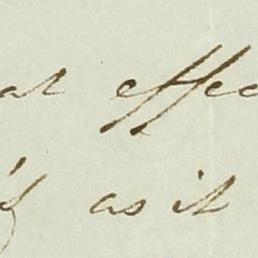 at effec
as it